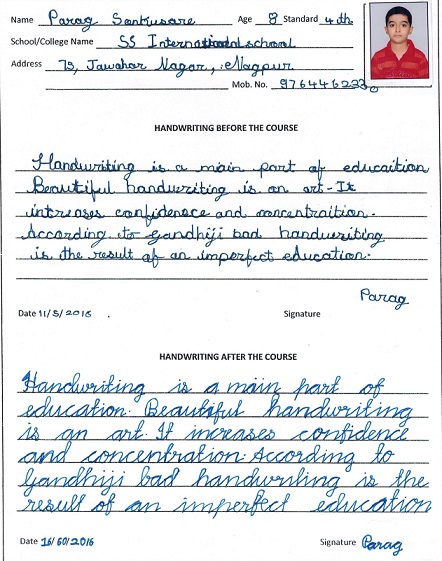 Name Parag Sankusare Age 8 Standard 4th
School/College Name SS International school
Address 75, Jawahar Nagar, Nagpur
Mob. No. 9764462330
HANDWRITING BEFORE THE COURSE
Handwriting is a main part of educaition
Beautiful handwriting is an art-It
intreases confidenace and concentraition.
According to gandhiji bad handwriting
is the result of an imperfect education.
Parag
Date 11/5/2016 . Signature
HANDWRITING AFTER THE COURSE
Handwriting is a main part of
education. Beautiful handwriting
is an art. It increses confidence
and concentration. According to
Gandhiji bad handwriting is the
result of an imperfect education
Date 16/60/2016 Signature Parag